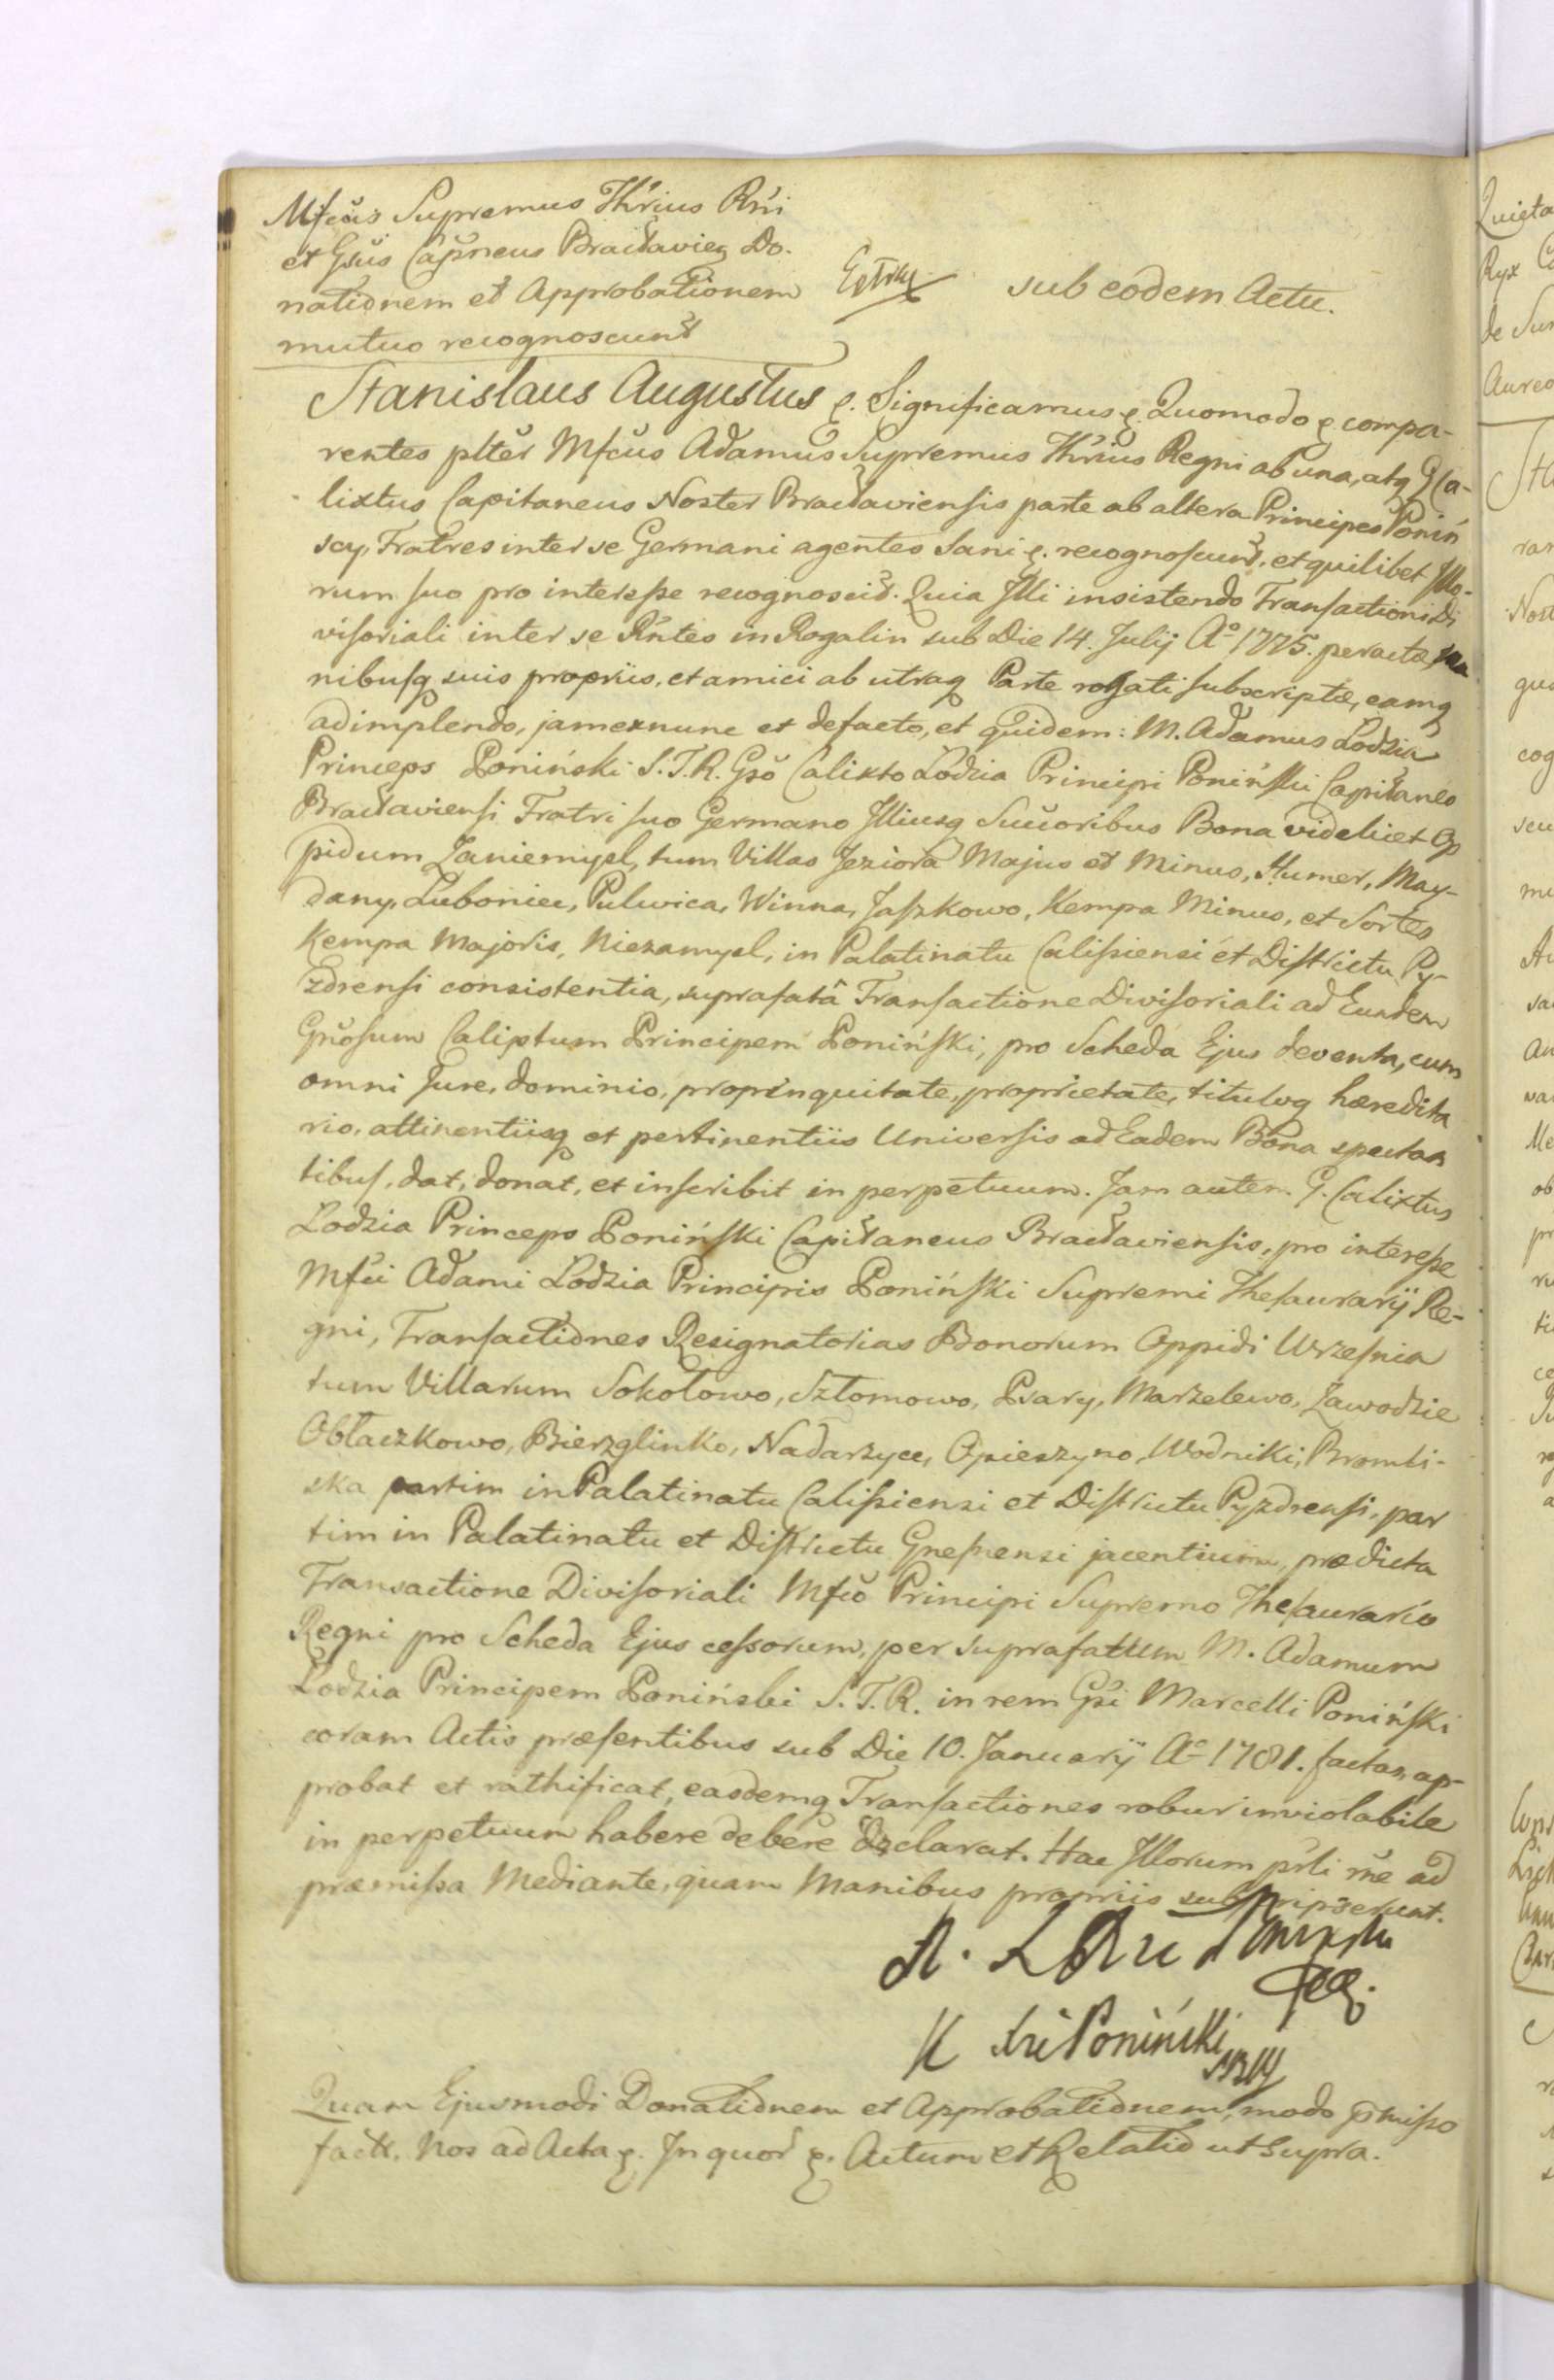 Mfcus Supremus Thrius Rni
et Gsus Capneus Bracłavien Do-
nationem et Approbationem
mutuo recognoscunt
sub eodem Actu.
Stanislaus Augustus &. Significamus &. Quomodo & compa-
rentes plter Mfcus Adamus Supremus Thrius Regni ab una, atq G Ca-
lixtus Capitaneus Noster Bracłaviensis parte ab altera Principes Ponin
scy, Fratres inter se Germani agentes Sani &. recognoscunt, et quilibet Illo-
rum suo pro interesse recognoscit. Quia Illi insistendo Transactioni Di
visoriali inter se Rntes in Rogalin sub Die 14. Julij Aº 1775. peractæ, ma
nibusq suis propriis, et amici ab utraq Parte rogati subscriptæ, eamq
adimplendo, jamexnunc et defacto, et quidem: M. Adamus Lodzia
Princeps Poniński S.T.R. Gso Calixto Lodzia Principi Poniński Capitaneo
Bracłaviensi Fratri suo Germano Illiusq Succoribus Bona videlicet Op
pidum Zaniemysl, tum Villas Jeziora Majus et Minus, Humer, May-
dany, Luboniec, Pulwica, Winna, Jaszkowo, Kempa Minus, et Sortes
Kempa Majoris, Niezamysl, in Palatinatu Calissiensi et Districtu Py-
zdrensi consistentia, suprafatâ Transactione Divisoriali ad Eundem
Gnrosum Calixtum Principem Poniński, pro Scheda Ejus deventa, cum
omni Jure, dominio, propinquitate, proprietate, tituloq hæredita
rio, attinentiisq et pertinentiis Universis ad Eadem Bona spectan
tibus, dat, donat, et inscribit in perpetuum. Jam autem G. Calixtus
Lodzia Princeps Poniński Capitaneus Bracłaviensis, pro interesse
Mfci Adami Lodzia Principis Poniński Supremi Thesaurarij Re-
gni, Transactiones Resignatorias Bonorum Oppidi Wrzesnia
tum Villarum Sokołowo, Sztomowo, Psary, Marzelewo, Zawodzie
Obłaczkowo, Bierzglinko, Nadarzyce, Opieszyno, Wodniki, Bromli-
ska partim in Palatinatu Calissiensi et Districtu Pyzdrensi, par
tim in Palatinatu et Districtu Gnesnensi jacentium, prædicta
Transactione Divisoriali Mfco Principi Supremo Thesaurario
Regni pro Scheda Ejus cessorum, per suprafatum M. Adamum
Lodzia Principem Poniński S.T.R. in rem Gsi Marcelli Poniński
coram Actis præsentibus sub Die 10. Januarij Aº 1781. factas, ap-
probat et rathificat, easdemq Transactiones robur inviolabile
in perpetuum habere debere declarat. Hac Illorum prli rne ad
præmissa Mediante, quam Manibus propriis subscripserunt.
K Poniński
Quam Ejusmodi Donationem et Approbationem, modo pmisso
fact. Nos ad Acta &. In quor &. Actum et Relatio ut supra.